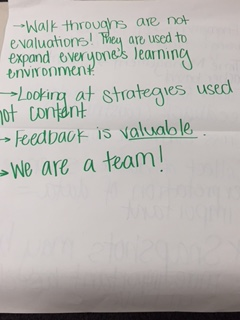 →Walk throughs are not
evaluations! They are used to
expand everyone's learning
environment.
→Looking at strategies used
not content
→Feedback is valuable.
→We are a team!